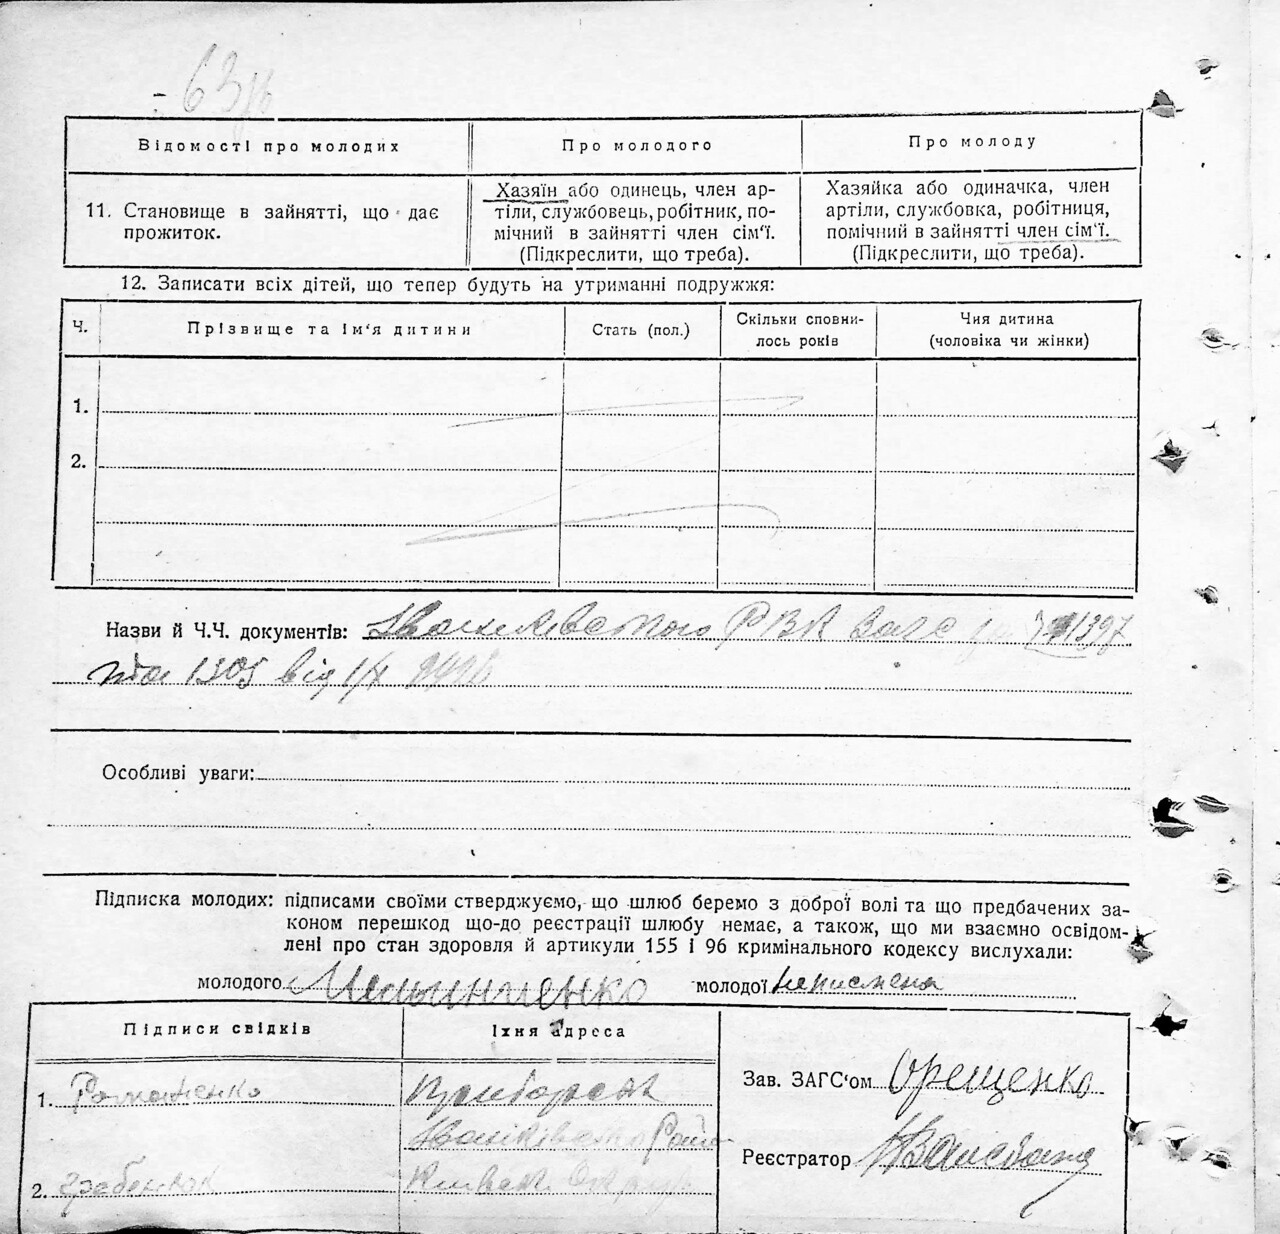 Відомості про молодих
Про молодого
Про молоду
11. Становище в зайнятті, що дає
прожиток.
Хазяїн або одинець, член ар-
тіли, службовець, робітник, по-
мічний в зайнятті член сім'ї.
(Підкреслити, що треба).
Хазяйка або одиначка, член
артіли, службовка, робітниця,
помічний в зайнятті член сім'ї.
(Підкреслити, що треба).
12. Записати всіх дітей, що тепер будуть на утриманні подружжя:
Ч.
Прізвище та ім'я дитини
Стать (пол.)
Скільки сповни-
лось років
Чия дитина
(чоловіка чи жінки)
1.
2.
Назви й Ч.Ч. документів: РВК Загс
та 1305 від
Особливі уваги:
Підписка молодих: підписами своїми стверджуємо, що шлюб беремо з доброї волі та що предбачених за-
коном перешкод що-до реєстрації шлюбу немає, а також, що ми взаємно освідом-
лені про стан здоровля й артикули 155 і 96 кримінального кодексу вислухали:
молодого молодої неписмена
Підписи свідків
Їхня адреса
1. Романенко
2.
Зав. ЗАГС'ом Орещенко
Реєстратор